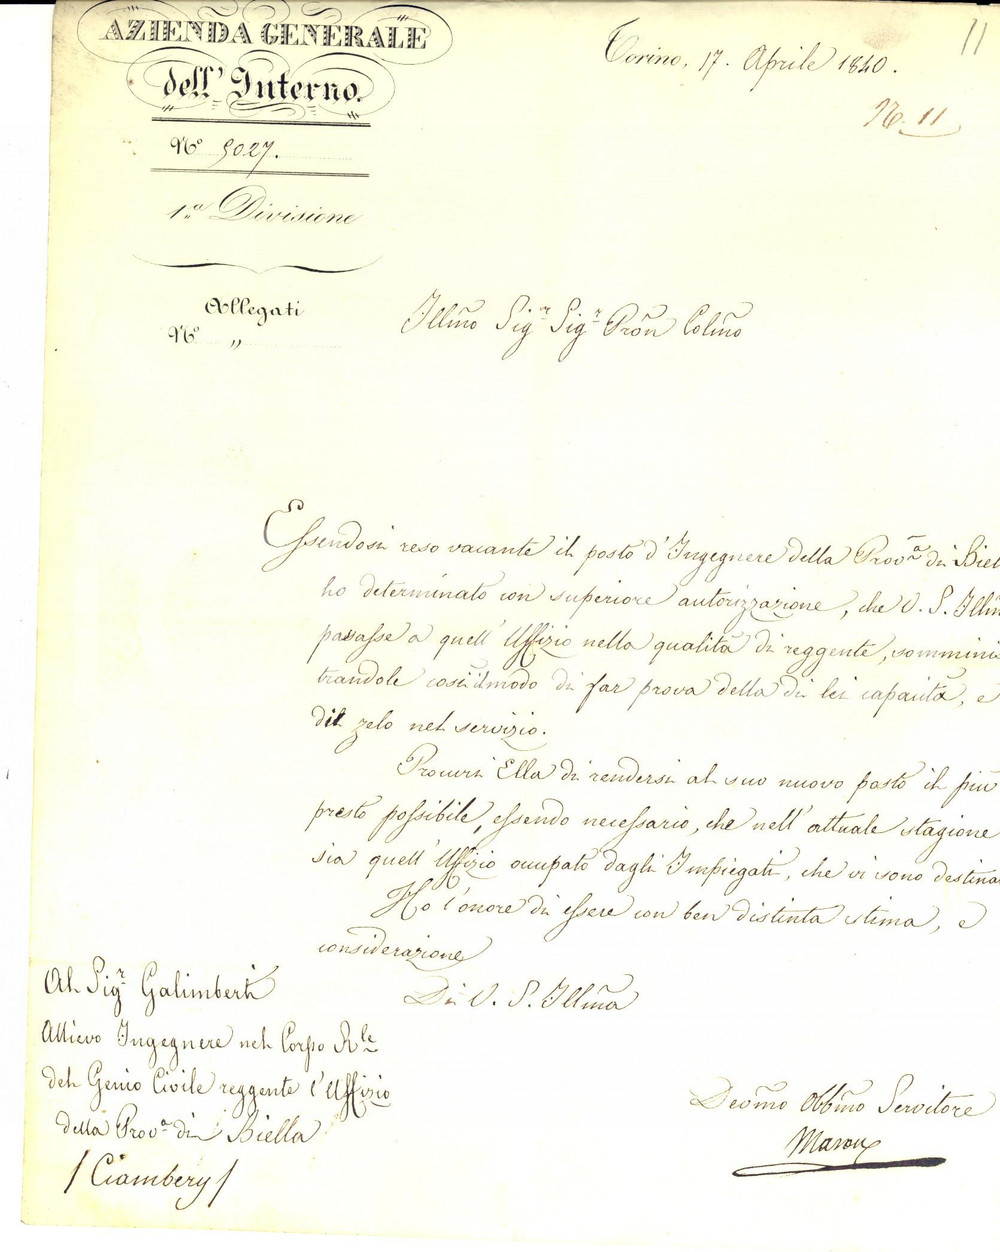 AZIENDA GENERALE
dell' Interno.
Nº 5027.
1.ª Divisione
Allegati
Nº "
Torino, 17. Aprile 1840.
11
N. 11
Illm̃o Sig.r Sig.r Pr̃on Colm̃o
Essendosi reso vacante il posto d'Ingegnere della Prov.a di Biel
ho determinato con superiore autorizzazione, che V. S. Illm
passasse a quell'Uffizio nella qualità di reggente, sommini
trandole così il modo di far prova della di lei capacità, e
dil zelo nel servizio.
Procuri Ella di rendersi al suo nuovo posto il più
presto possibile, essendo necessario, che nell'attuale stagione
sia quell'Uffizio occupato dagli Impiegati, che vi sono destina
Ho l'onore di essere con ben distinta stima, e
considerazione
Di V. S. Illm̃a
Al Sig.r Galimberti
Allievo Ingegnere nel Corpo R.le
del Genio Civile reggente l'Uffizio
della Prov.a di Biella
/ Ciambery /
Devom̃o Obbm̃o Servitore